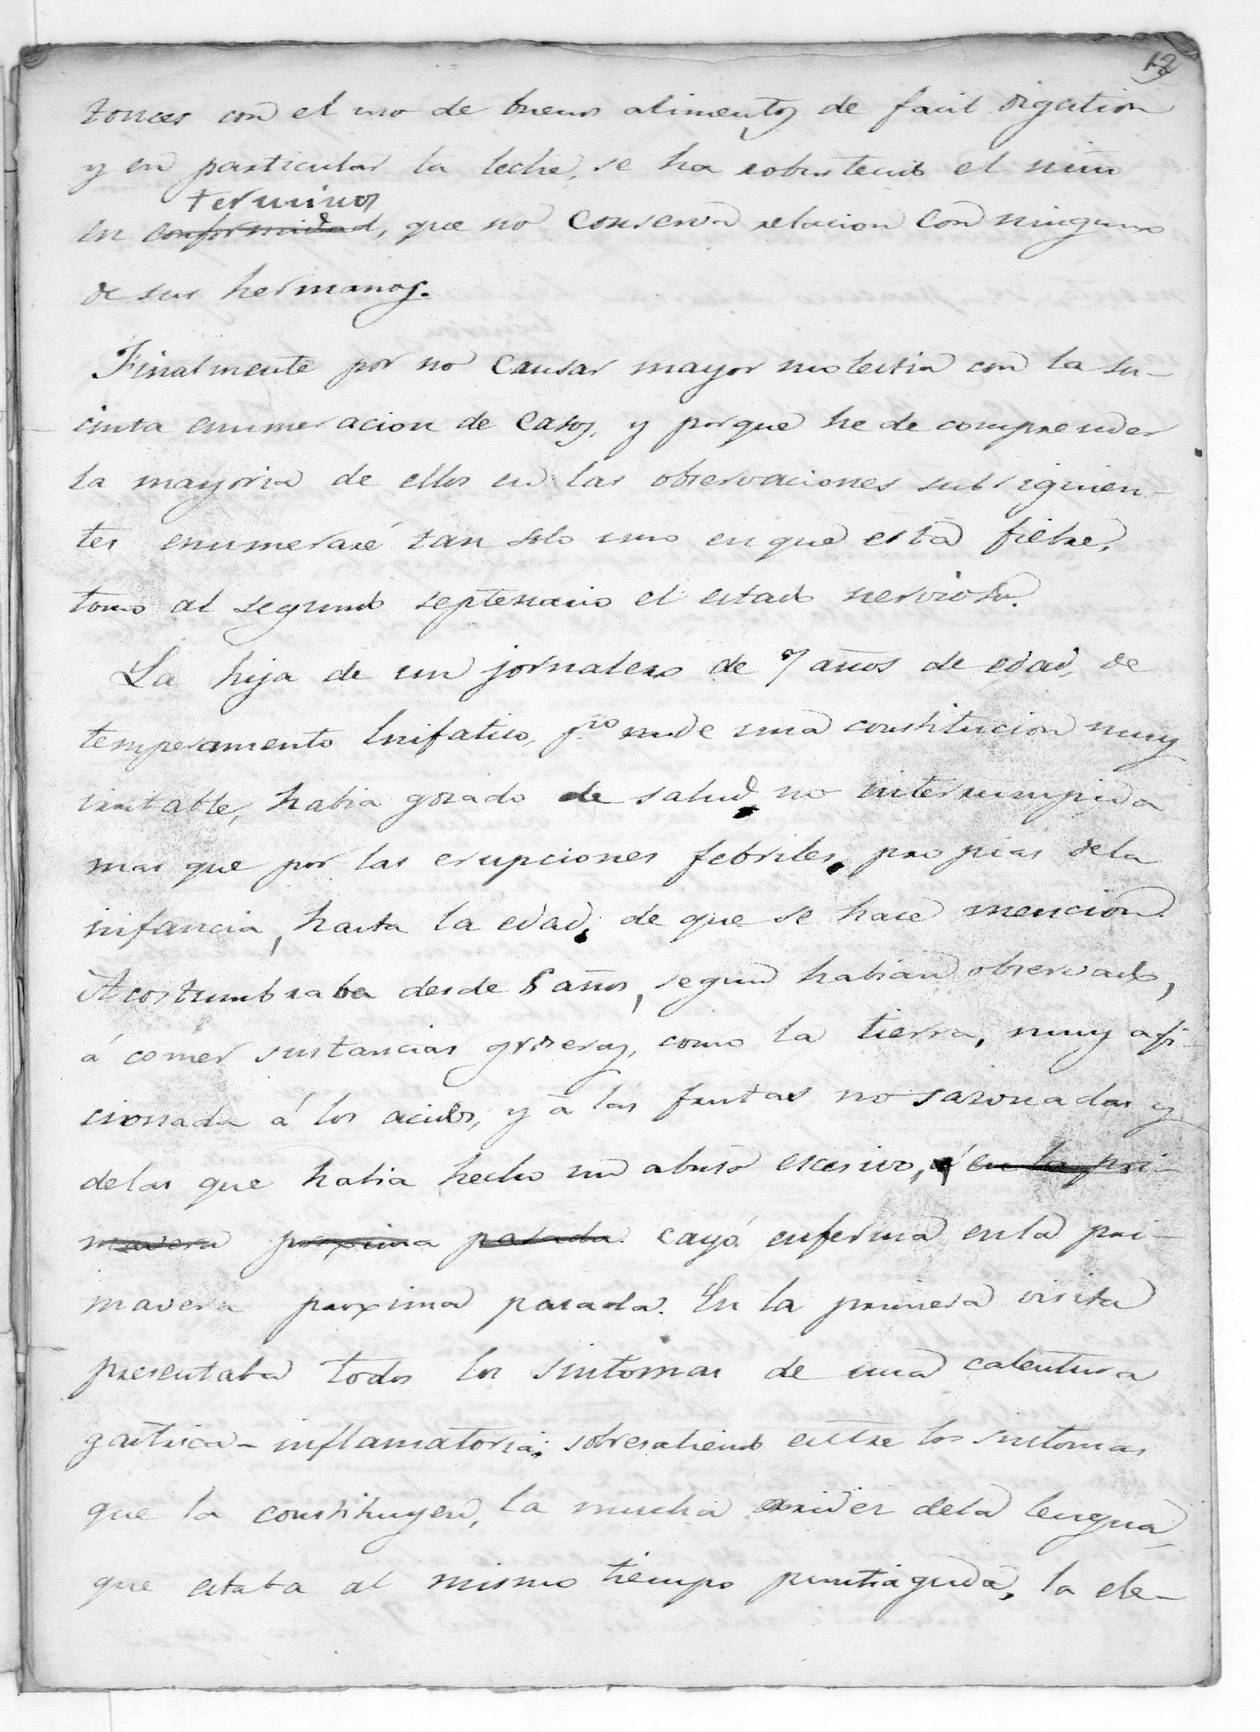 12
tonces con el uso de buenos alimentos de facil digestion
y en particular la leche, se ha robustecido el niño
terminos
en conformidad, que no conserva relacion con ninguno
de sus hermanos.
Finalmente por no causar mayor molestia con la su-
cinta enumeracion de casos, y porque he de comprender
la mayoria de ellos en las observaciones subsiguien-
tes enumeraré tan solo uno en que esta fiebre,
tomo al segundo septenario el estado nervioso.
La hija de un jornalero de 7 años de edad, de
temperamento linfatico, pro de una constitucion muy
irritable, habia gozado de salud no interrumpida
mas que por las erupciones febriles, propias dela
infancia, hasta la edad, de que se hace mencion.
Acostumbraba desde 5 años, segun habian observado,
á comer sustancias groseras, como la tierra, muy afi-
cionada á los acidos, y á las frutas no sazonadas y
delas que habia hecho un abuso escesivo, en la pri-
mavera proxima pasada. cayó enferma en la pri-
mavera proxima pasada. En la primera visita
presentaba todos los sintomas de una calentura
gastrica-inflamatoria; sobresaliendo entre los sintomas
que la constituyen, la mucha aridez dela lengua,
que estaba al mismo tiempo puntiaguda, la ele-